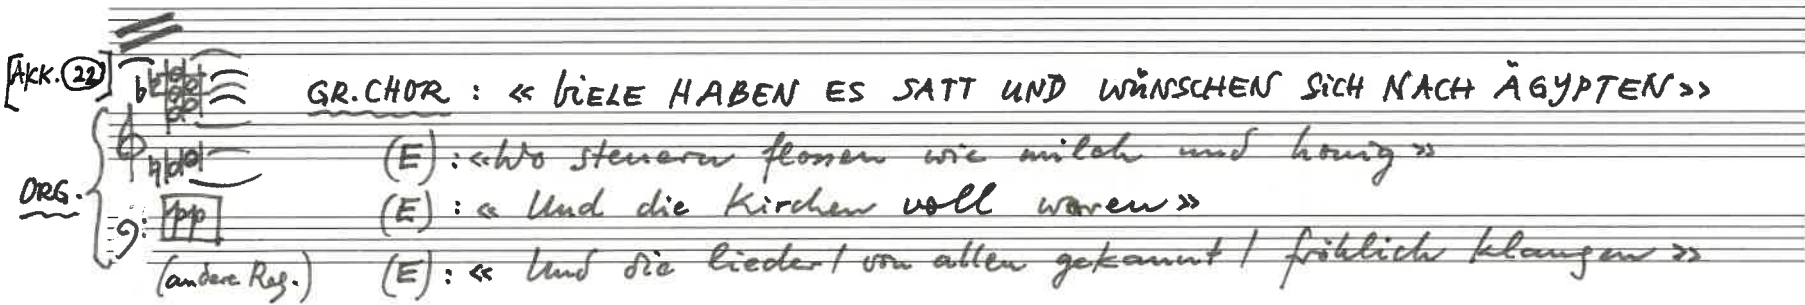 [AKK. 22] GR.CHOR : « VIELE HABEN ES SATT UND WÜNSCHEN SICH NACH ÄGYPTEN »
(E) : « Wo steuern flossen wie milch und honig »
ORG. pp (E) : « Und die Kirchen voll waren »
(andere Reg.) (E) : « Und die lieder / von allen gekannt / fröhlich klangen »